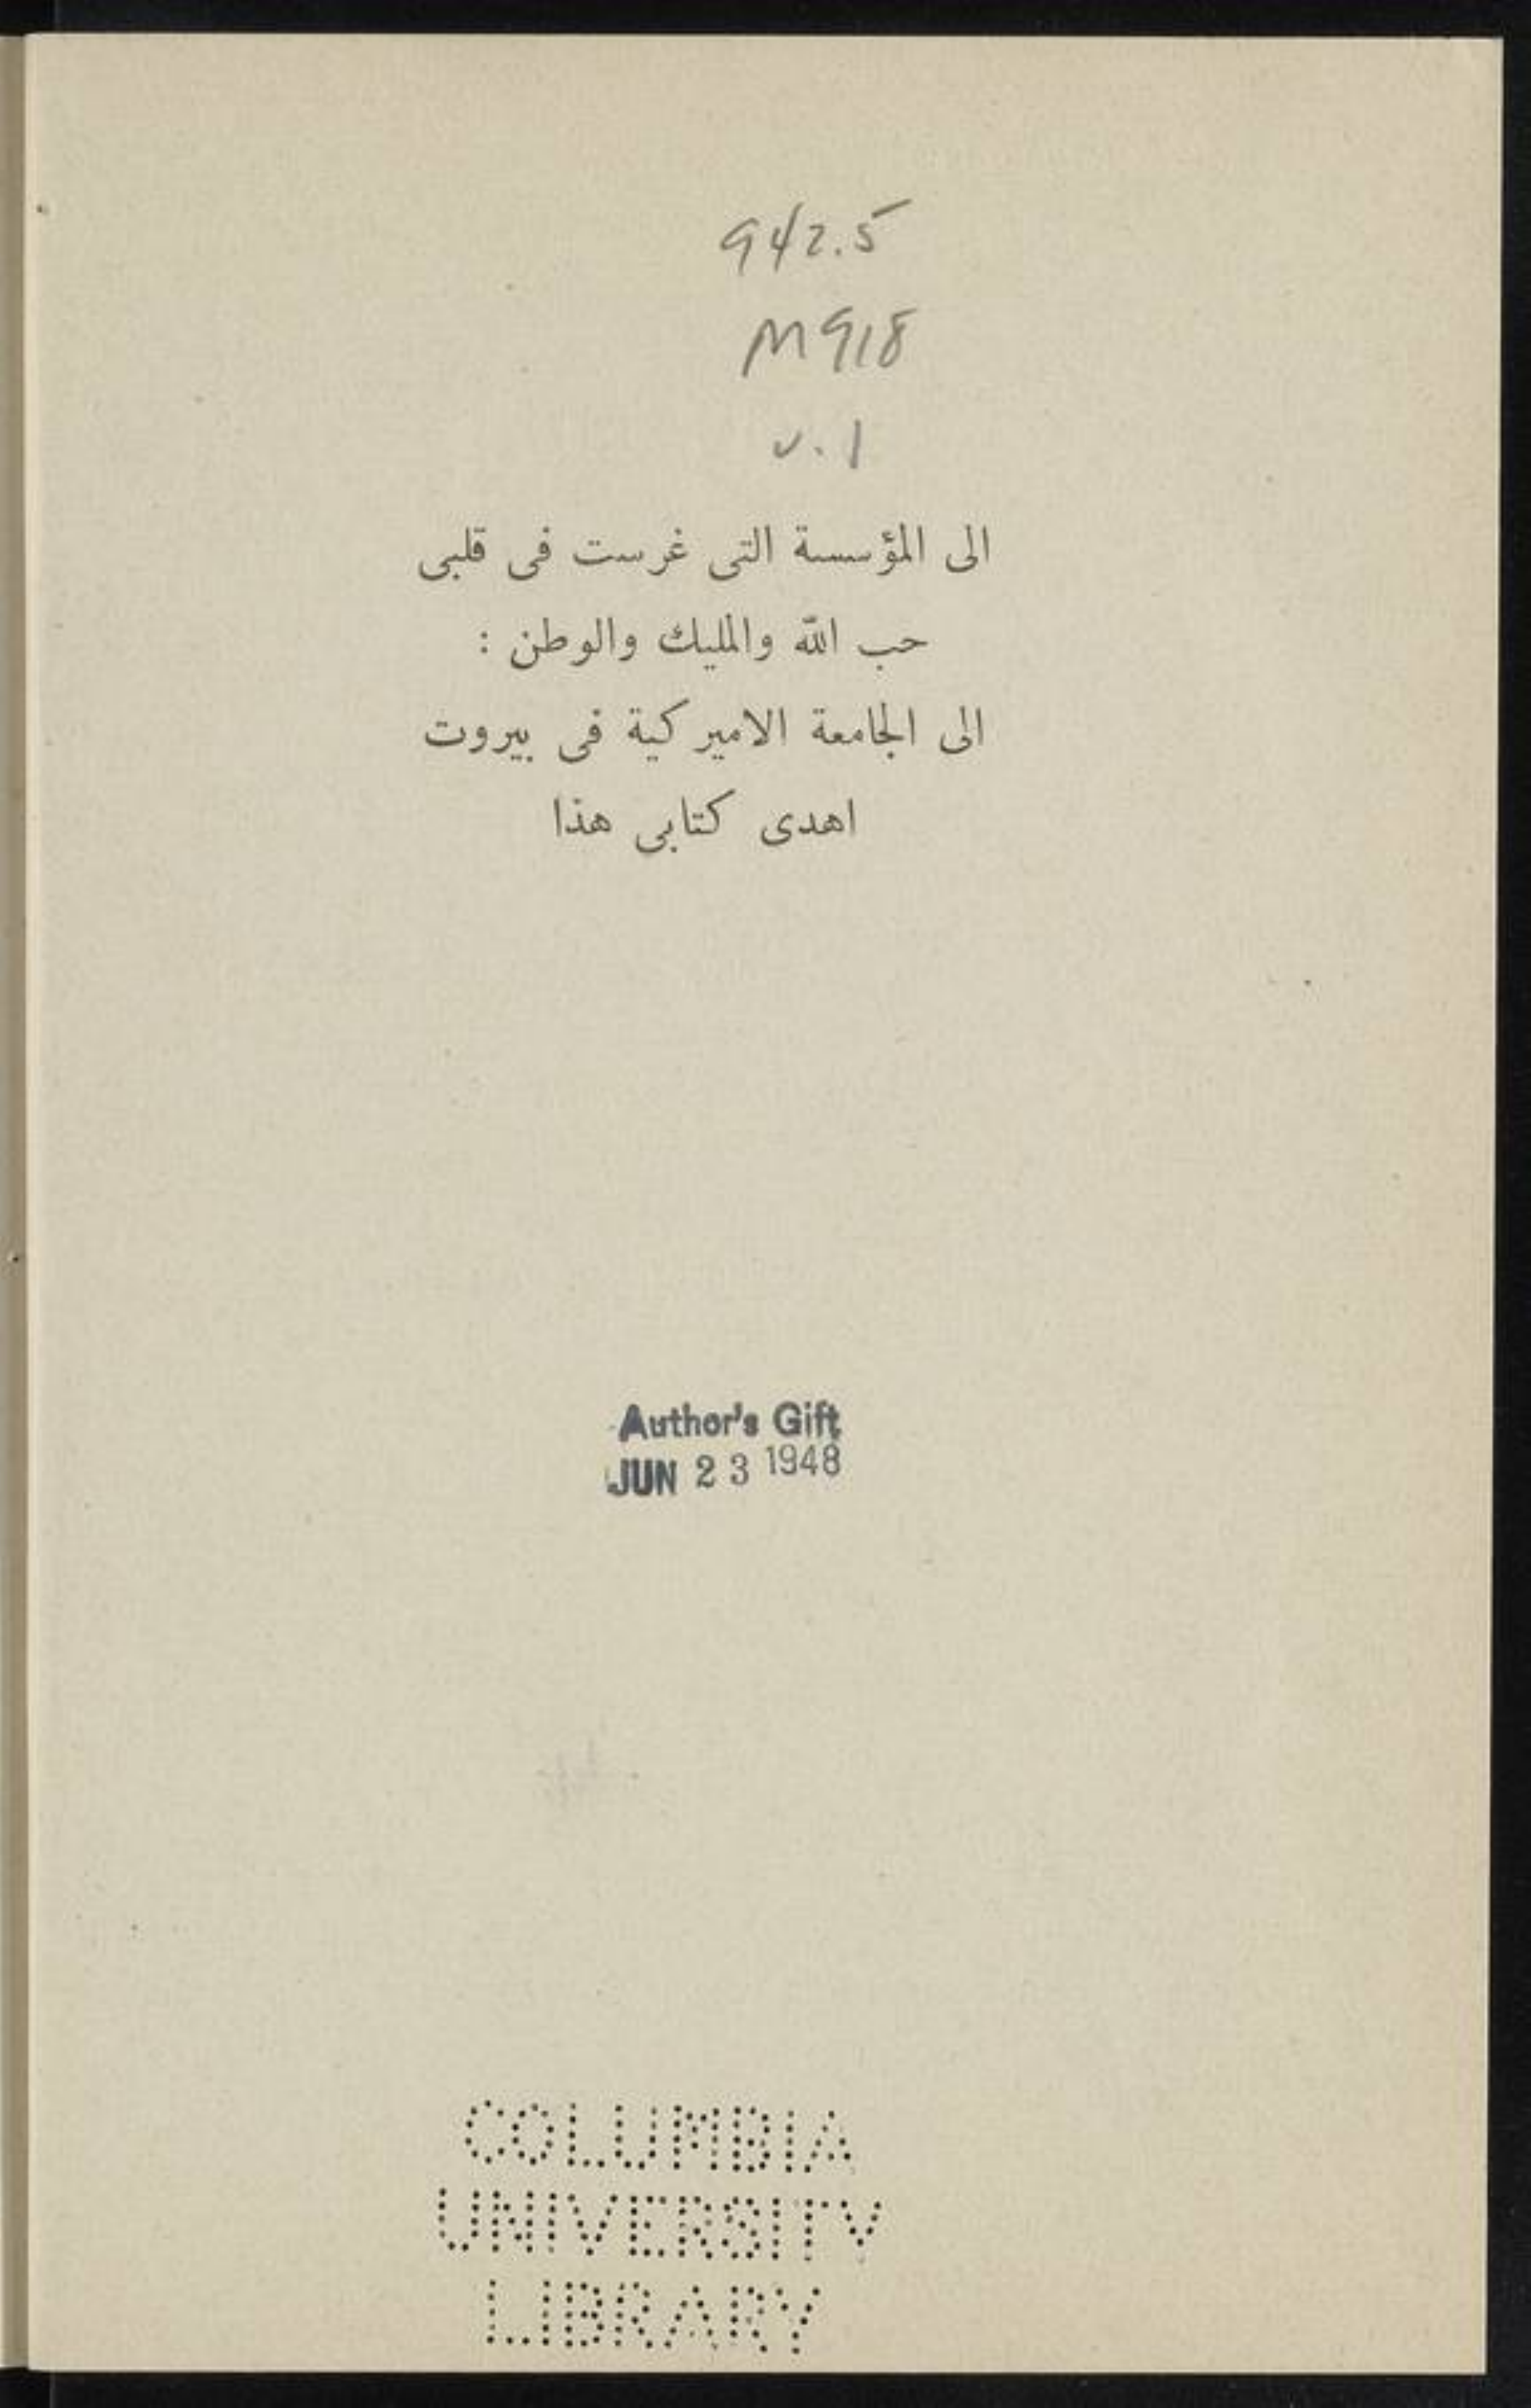 942.5
M918
v. 1
الى المؤسسة التى غرست فى قلبى
حب الله والمليك والوطن :
الى الجامعة الاميركية فى بيروت
اهدى كتابى هذا
Author's Gift
JUN 23 1948
COLUMBIA
UNIVERSITY
LIBRARY